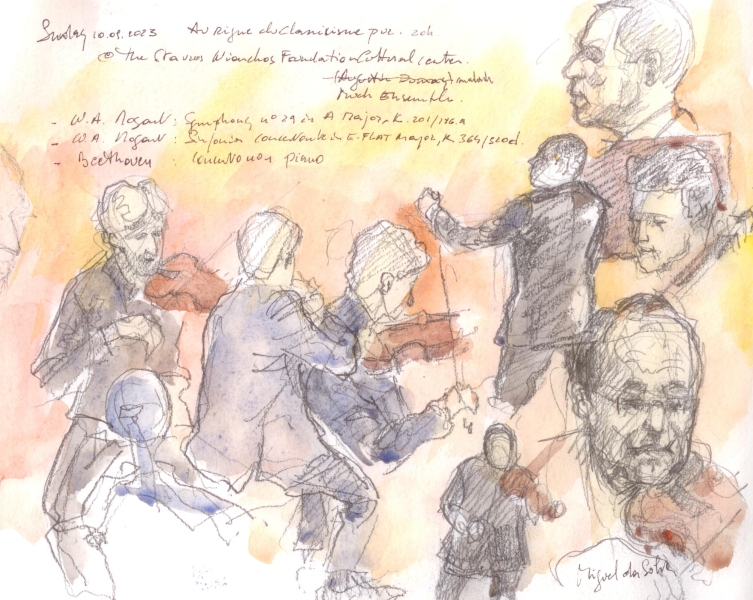 Sunday 10.09.2023 Au signe du Classicisme 20h
@ The Stavros Niarchos Foundation Cultural center.
Ensemble.
- W.A. Mozart: Symphony no 29 in A Major, K. 201/186a
- W.A. Mozart: Sinfonia concertante in E-FLAT Major, K 364/320d.
- Beethoven : concerto no 1 piano
Miguel da Silva